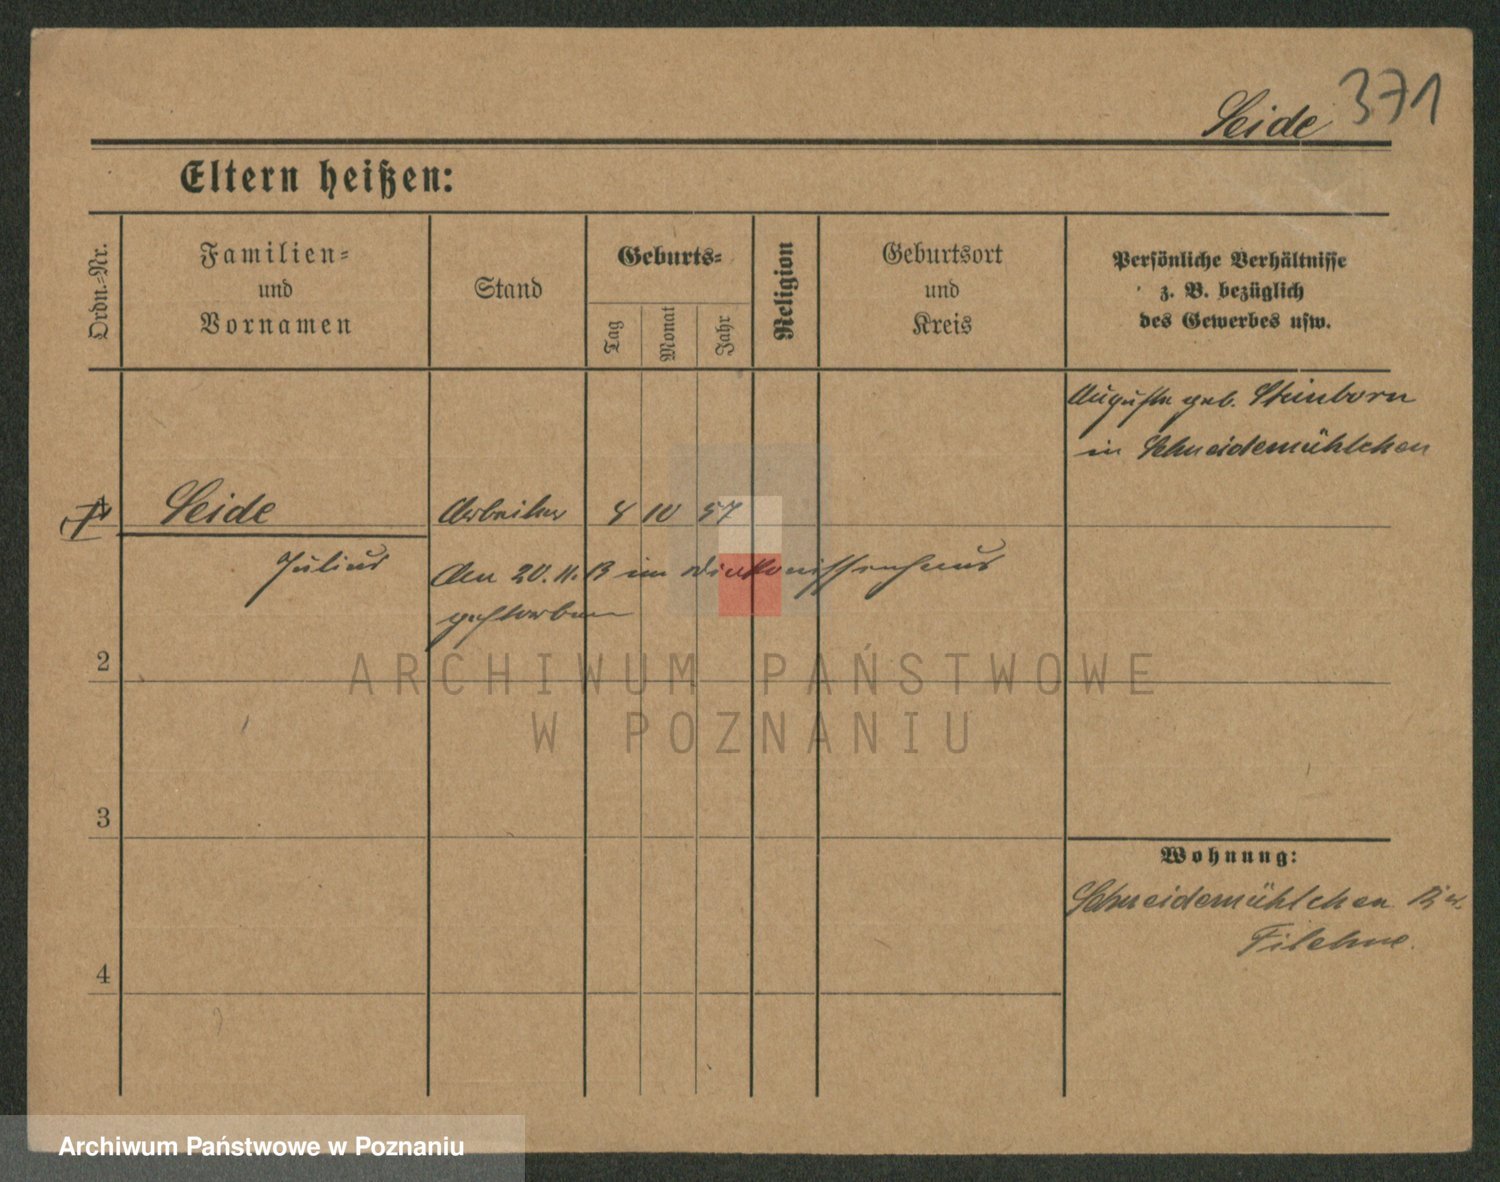 Seide 371
Eltern heißen:
Ordn.-Nr.
Familien-
und
Vornamen
Stand
Geburts-
Tag
Monat
Jahr
Religion
Geburtsort
und
Kreis
Persönliche Verhältnisse
z. B. bezüglich
des Gewerbes usw.
Auguste geb. Steinborn
in Schneidemühlchen
1 Seide Arbeiter 4 10 57
Julius
Am 20. 11. 13 im Diakonissenhaus
gestorben
2
3
4
Wohnung:
Schneidemühlchen
Filehne.
ARCHIWUM PAŃSTWOWE
W POZNANIU
Archiwum Państwowe w Poznaniu